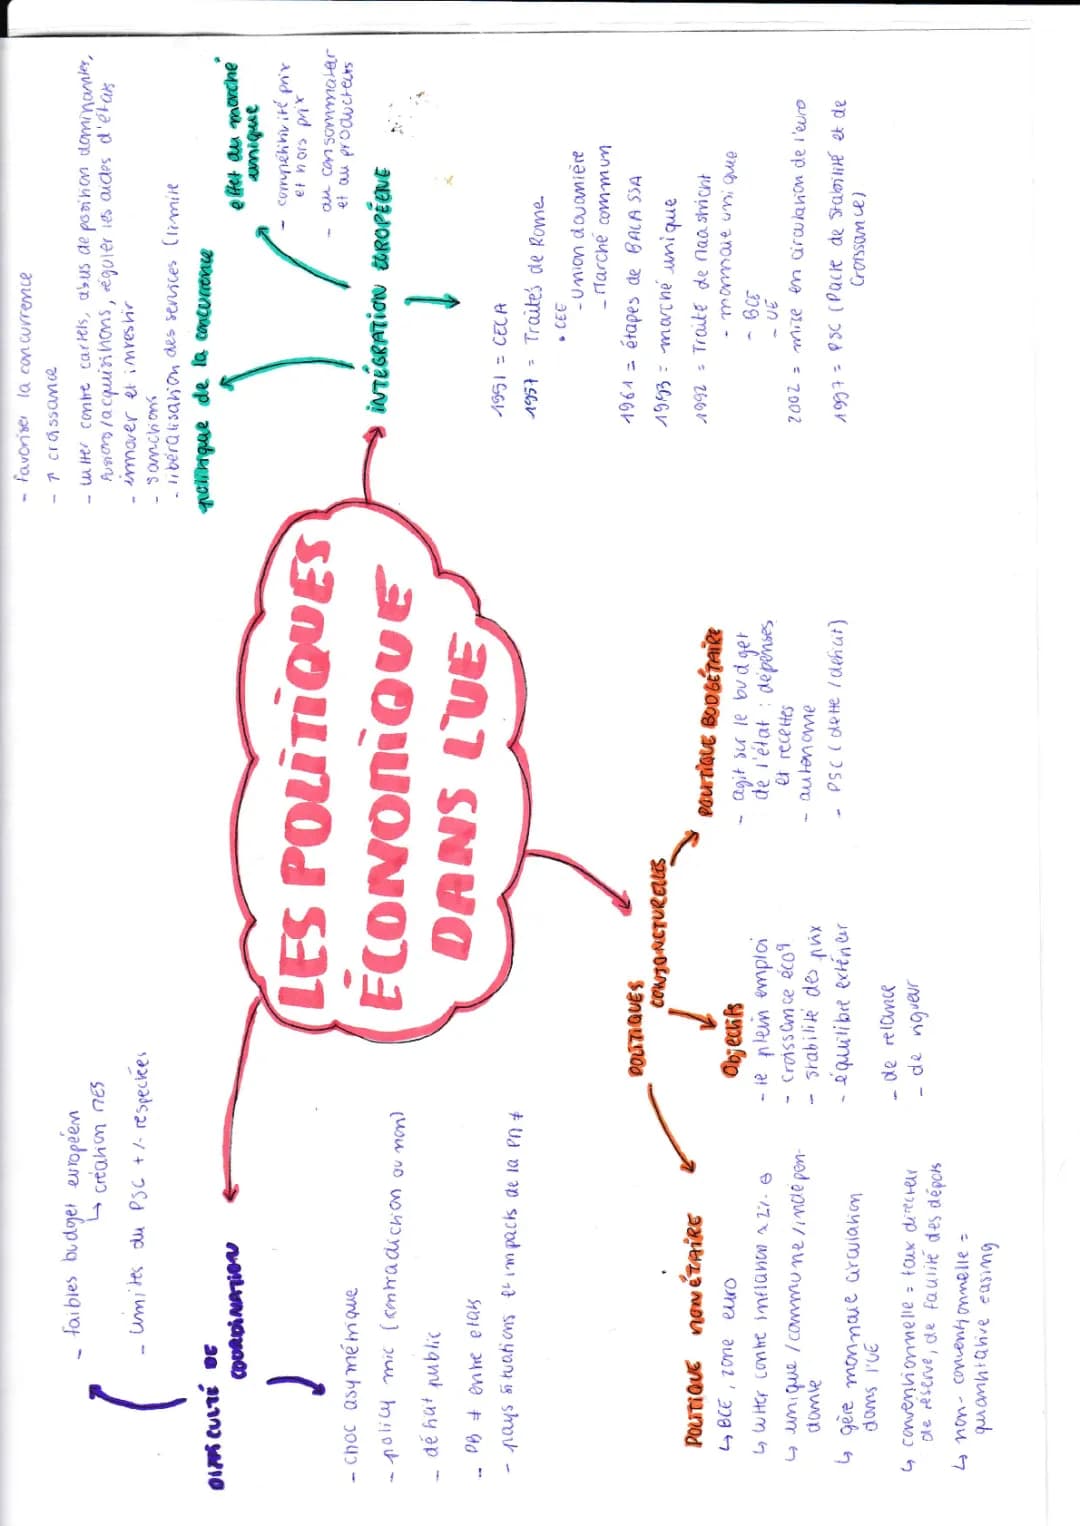 LES POLITIQUES
ÉCONOMIQUE
DANS L'UE
INTÉGRATION EUROPÉENE
politique de la concurrence
- favoriser la concurrence
- ↑ croissance
- lutter contre cartels, abus de position dominantes,
fusions/acquisitions, réguler les aides d'états
- innover et investir
- sanctions
- libéralisation des services (limite
effet du marché
unique
- compétitivité prix
et hors prix
- au consommateur
et au producteurs
1951 = CECA
1957 = Traités de Rome
• CEE
- Union douanière
- Marché commun
1961 = étapes de BALASSA
1993 = marché unique
1992 = Traité de Maastricht
- monnaie unique
- BCE
- UE
2002 = mise en circulation de l'euro
1997 = PSC (Pacte de Stabilité et de
Croissance)
POLITIQUES
CONJONCTURELLES
POLITIQUE BUDGÉTAIRE
- agit sur le budget
de l'état : dépenses
et recettes
- autonome
- PSC (dette / déficit)
Objectifs
- le plein emploi
- croissance éco
- stabilité des prix
- équilibre extérieur
- de relance
- de rigueur
POLITIQUE MONÉTAIRE
↳ BCE, zone euro
↳ lutter contre inflation ≈ 2%
↳ unique / commune / indépen-
dante
↳ gère monnaie circulation
dans l'UE
↳ conventionnelle = taux directeur
de réserve, de facilité des dépôts
↳ non-conventionnelle =
quantitative easing
DIFFICULTÉ DE
COORDINATION
- faibles budget européen
↳ création MES
- limites du PSC +/- respectées
- choc asymétrique
- policy mic (contradiction ou non)
- débat public
- PB ≠ entre états
- pays situations et impacts de la PM ≠